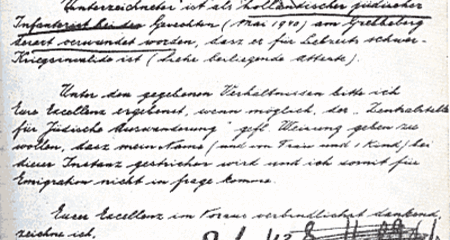 Unterzeichneter ist als holländischer jüdischer
Infanterist bei den Gevechten (Mai 1940) am Grebbeberg
derart verwundet worden, dasz er für Lebzeits schwer-
Kriegsinvalide ist (siehe beiliegende Atteste).
Unter den gegebenen Verhältnissen bitte ich
Eure Excellenz ergebenst, wenn möglich, der "Zentralstelle
für Jüdische Auswanderung" gefl. Weisung geben zu
wollen, dasz mein Name (und von Frau und 1 Kind) bei
dieser Instanz gestrichen wird und ich somit für
Emigration nicht in frage komme.
Euer Excellenz im Voraus verbindlichst dankend,
zeichne ich,